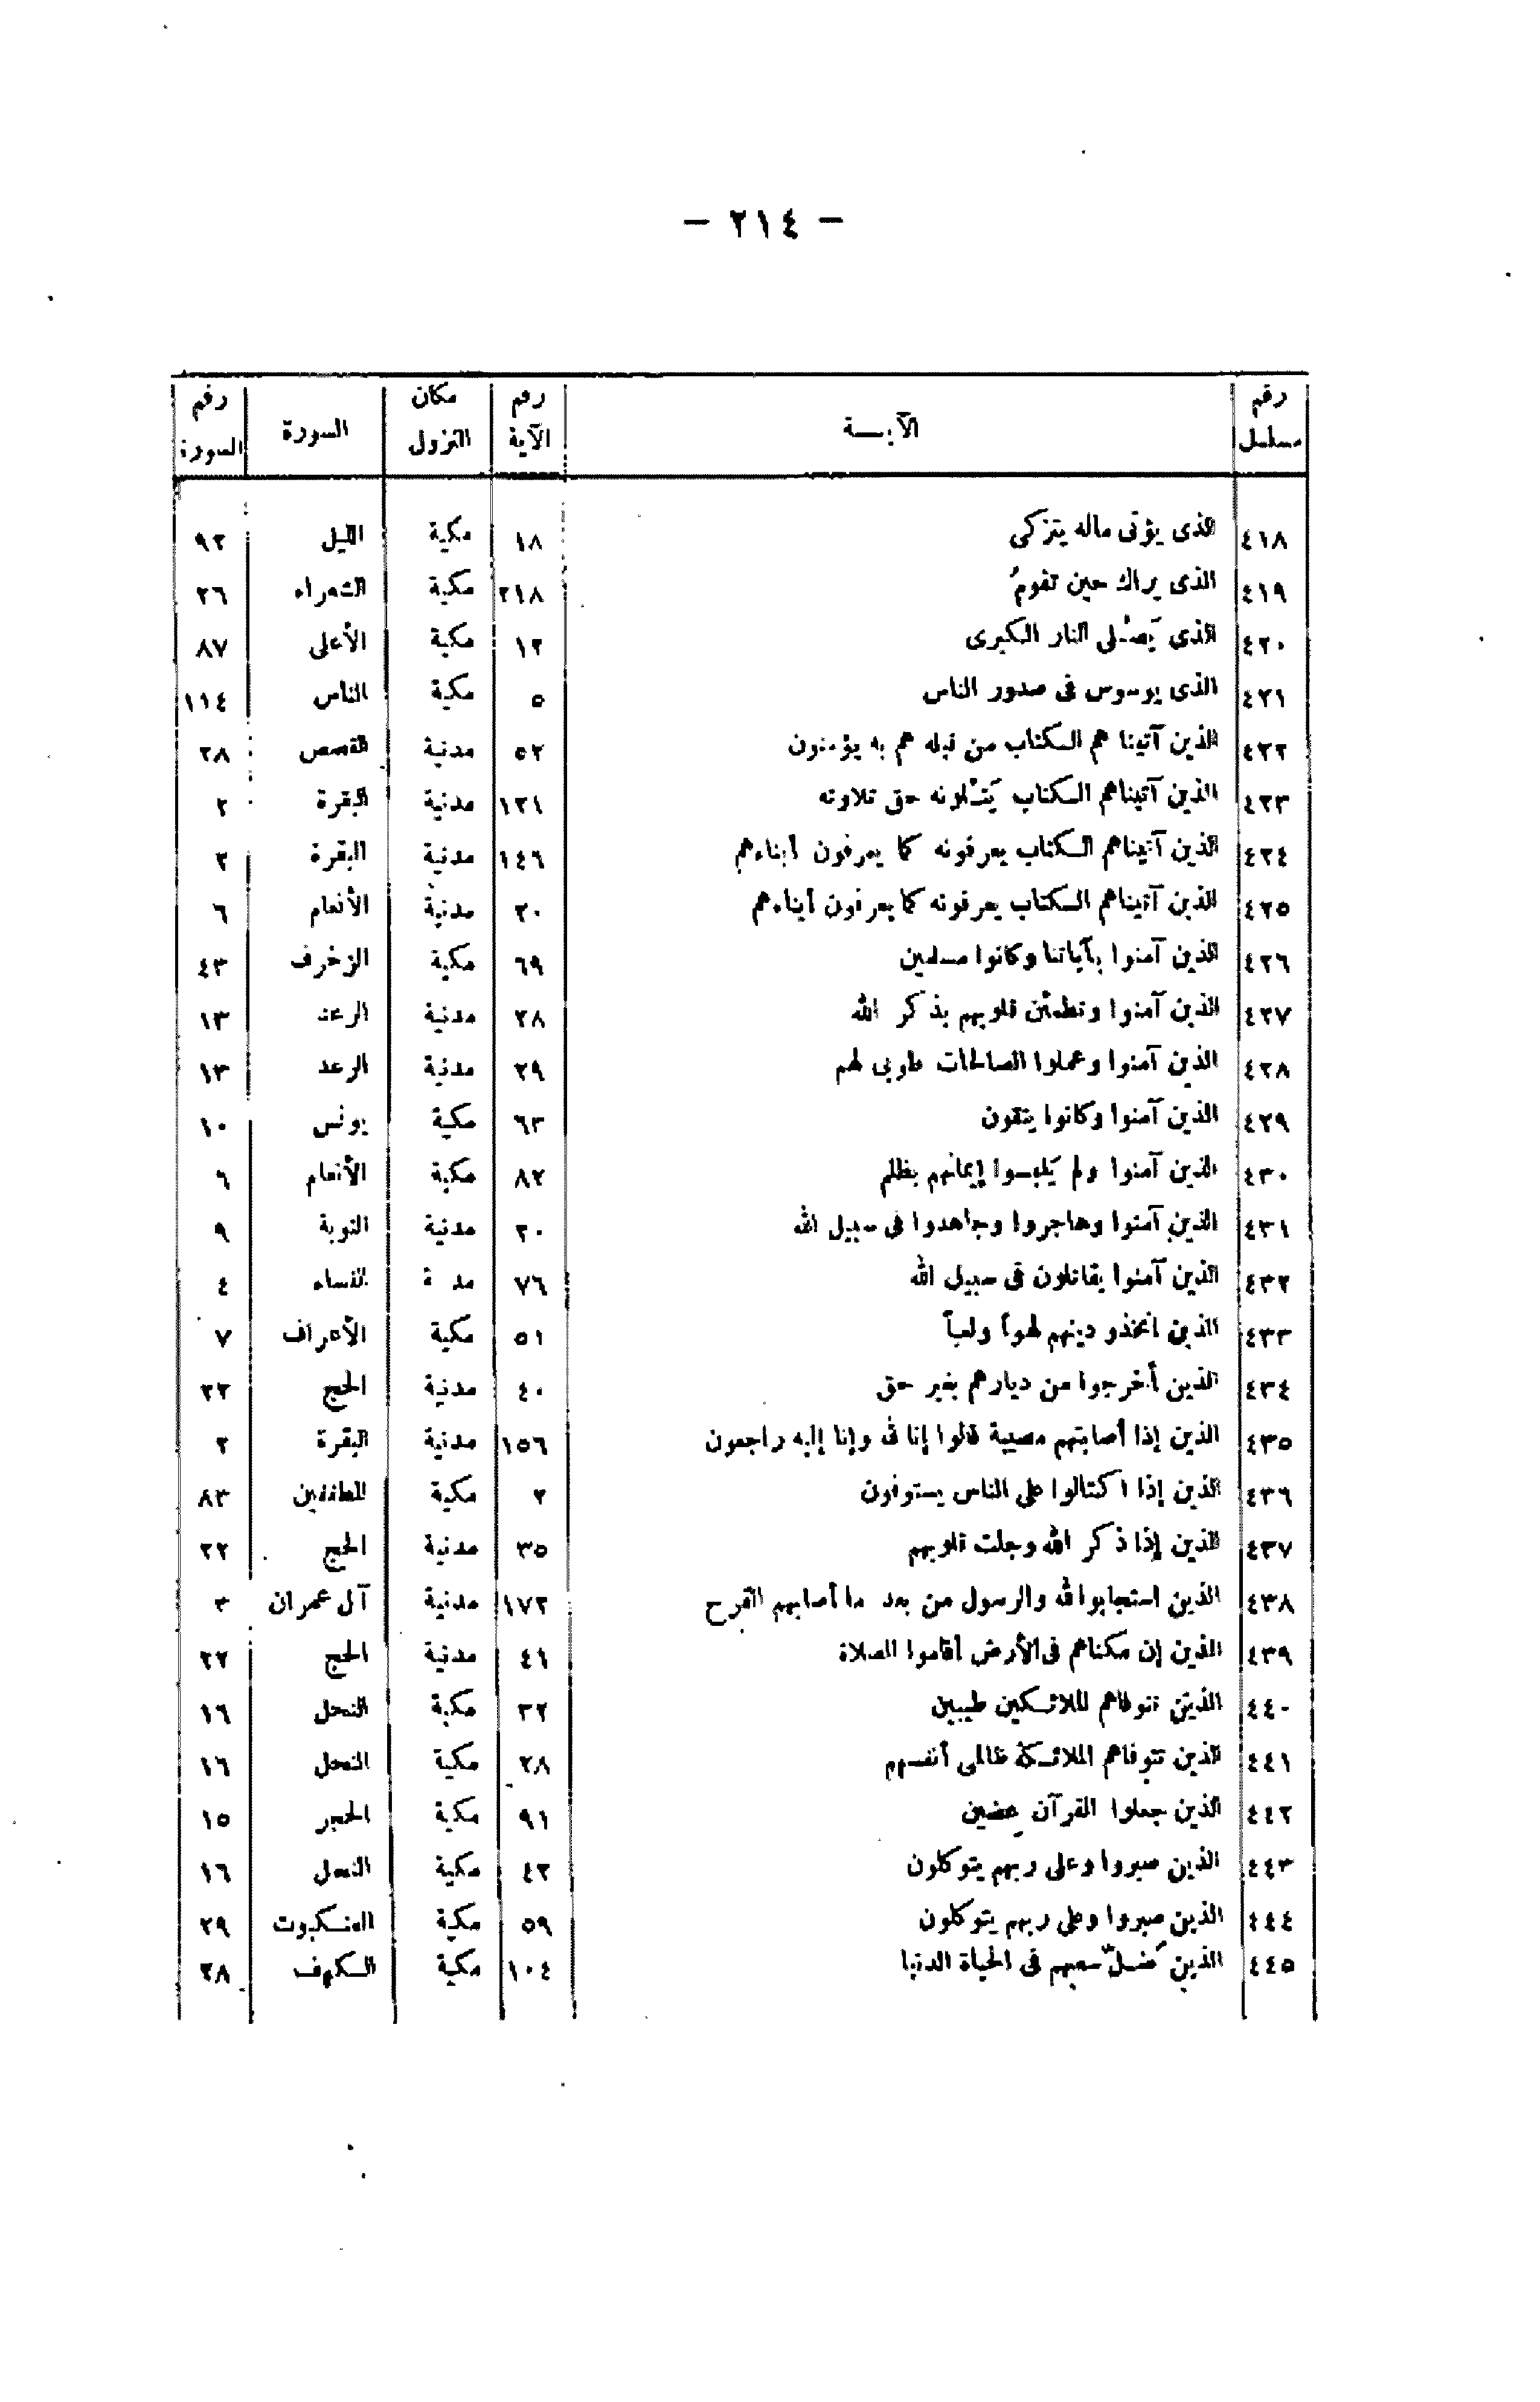 — ٢١٤ —
رقم مسلسل الآيــة رقم الآية مكان النزول السورة رقم السورة
٤١٨ الذى يؤتى ماله يتزكى ١٨ مكية الليل ٩٢
٤١٩ الذى يراك حين تقومُ ٢١٨ مكية الشعراء ٢٦
٤٢٠ الذى يَصْلى النار الكبرى ١٢ مكية الأعلى ٨٧
٤٢١ الذى يوسوس فى صدور الناس ٥ مكية الناس ١١٤
٤٢٢ الذين آتينا هم الكتاب من قبله هم به يؤمنون ٥٢ مدنية القصص ٢٨
٤٢٣ الذين آتيناهم الكتاب يَتْلونه حق تلاوته ١٢١ مدنية البقرة ٢
٤٢٤ الذين آتيناهم الكتاب يعرفونه كما يعرفون أبناءهم ١٤٦ مدنية البقرة ٢
٤٢٥ الذين آتيناهم الكتاب يعرفونه كما يعرفون أبناءهم ٢٠ مدنية الأنعام ٦
٤٢٦ الذين آمنوا بآياتنا وكانوا مسلمين ٦٩ مكية الزخرف ٤٣
٤٢٧ الذين آمنوا وتطمئن قلوبهم بذكر الله ٢٨ مدنية الرعد ١٣
٤٢٨ الذين آمنوا وعملوا الصالحات طوبى لهم ٢٩ مدنية الرعد ١٣
٤٢٩ الذين آمنوا وكانوا يتقون ٦٣ مكية يونس ١٠
٤٣٠ الذين آمنوا ولم يَلبسوا إيمانهم بظلم ٨٢ مكية الأنعام ٦
٤٣١ الذين آمنوا وهاجروا وجاهدوا فى سبيل الله ٢٠ مدنية التوبة ٩
٤٣٢ الذين آمنوا يقاتلون فى سبيل الله ٧٦ مد ة النساء ٤
٤٣٣ الذين اتخذو دينهم لهواً ولعباً ٥١ مكية الأعراف ٧
٤٣٤ الذين أخرجوا من ديارهم بغير حق ٤٠ مدنية الحج ٢٢
٤٣٥ الذين إذا أصابتهم مصيبة قالوا إنا لله وإنا إليه راجعون ١٥٦ مدنية البقرة ٢
٤٣٦ الذين إذا اكتالوا على الناس يستوفون ٢ مكية المطففين ٨٣
٤٣٧ الذين إذا ذكر الله وجلت قلوبهم ٣٥ مدنية الحج ٢٢
٤٣٨ الذين استجابوا لله والرسول من بعد ما أصابهم القرح ١٧٢ مدنية آل عمران ٣
٤٣٩ الذين إن مكناهم فى الأرض أقاموا الصلاة ٤١ مدنية الحج ٢٢
٤٤٠ الذين تتوفاهم الملائكين طيبين ٣٢ مكية النحل ١٦
٤٤١ الذين تتوفاهم الملائكة ظالمى أنفسهم ٢٨ مكية النحل ١٦
٤٤٢ الذين جعلوا القرآن عِضين ٩١ مكية الحجر ١٥
٤٤٣ الذين صبروا وعلى ربهم يتوكلون ٤٢ مكية النحل ١٦
٤٤٤ الذين صبروا وعلى ربهم يتوكلون ٥٩ مكية العنكبوت ٢٩
٤٤٥ الذين ضلّ سعيهم فى الحياة الدنيا ١٠٤ مكية الكهف ٢٨